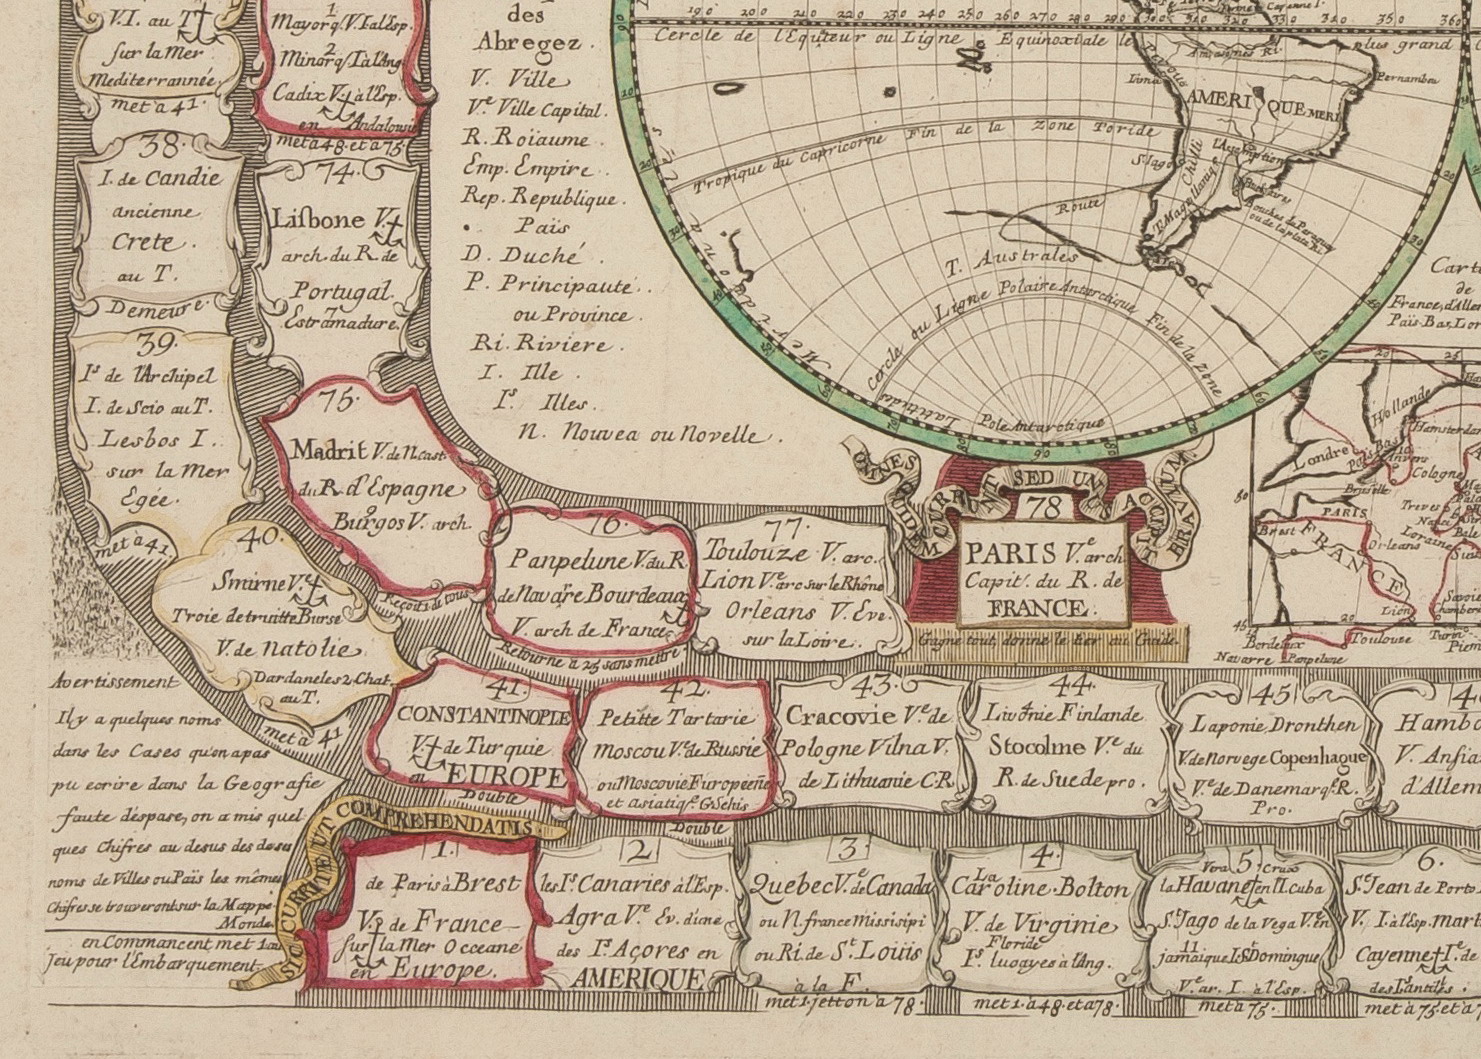 V.I. au T
sur la Mer
Mediterrannée.
met à 41.
1
Mayorq/V.I à l'Esp.
2
Minorq/I à l'Ang
Cadix V. à l'Esp.
en Andalousie
met à 48. et à 75
38.
I. de Candie
ancienne
Crete.
au T.
Demeure.
74.
Lisbone V.
arch. du R. de
Portugal.
Estramadure.
39.
Is de l'Archipel
I. de Scio au T.
Lesbos I.
sur la Mer
Egée.
met à 41.
75.
Madrit V. de N. cast.
du R. d'Espagne
Burgos V. arch.
Reçoit 1. de tous
40.
Smirne Ve
Troie detruitte Burse
V. de Natolie
Dardaneles 2 Chat.
au T.
met à 41
76.
Panpelune V. du R.
de Navarre Bourdeaux
V. arch de France
Retourne à 25 sans mettre
77.
Toulouze V. arc.
Lion Ve arc sur le Rhône
Orleans V. Eve.
sur la Loire.
OMNES QUIDEM CURRUNT SED UNUS ACCIPIT BRAVIUM
78
PARIS Ve arch
Capit. du R. de
FRANCE.
Gagne tout, donne le tier au Guide
des
Abregez.
V. Ville
Ve Ville Capital.
R. Roïaume.
Emp. Empire.
Rep. Republique.
. Païs
D. Duché.
P. Principauté.
ou Province.
Ri. Riviere.
I. Ille.
Is. Illes.
N. Nouvea ou Novelle.
190 200 210 220 230 240 250 260 270 280 290 300 310 320 330 340 350 360
Cayenne I.
Cercle de l'Equateur ou Ligne Equinoxiale le plus grand
Amazones Ri.
Perous
Lima
Pernambu
AMERIQUE MERI
l'Assomption
Chilli
S. Iago
T. Magellanique
Bouches de Paraguay
ou de la plata Ri.
Tropique du Capricorne Fin de la Zone Toride
Route
T. Australes
Mer du
Cercle ou Ligne Polaire Antarctique Fin de la Zone
Latitudes
Pole Antarctique
90
Carte
de
France, d'Allem
Païs Bas, Lor
20 25
Hollande
Londre
Hamsterdam
Païs Bas
Anvers
Cologne
Bruselle
50
PARIS
Treves
Brest
FRANCE
Orleans
Loraine
Bale
Savoie
Chamberi
Lion
45 20
Bordeaux
Toulouse
Turin
Piem
Navarre
Panpelune
Avertissement
Il y a quelques noms
dans les Cases qu'on a pas
pu ecrire dans la Geografie
faute d'espase, on a mis quel
ques Chifres au desus des dessus
noms de Villes ou Païs les mêmes
Chifres se trouveront sur la Mappe
Monde.
en Commancent met 1 au
Jeu pour l'Embarquement.
41.
CONSTANTINOPLE
V. de Turquie
en EUROPE
Double
42.
Petitte Tartarie
Moscou Ve de Russie
ou Moscovie Europeeñe
et asiatiqe. G. Sehis
Double
43.
Cracovie Ve de
Pologne Vilna V.
de Lithuanie C.R.
44.
Livonie Finlande
Stocolme Ve du
R. de Suede pro.
45
Laponie Dronthen
V. de Norvege Copenhague
Ve de Danemarq. R.
Pro.
4
Hambo
V. Ansia
d'Allem
SIC CURRITE UT COMPREHENDATIS.
1.
de Paris à Brest
V. de France
sur la Mer Occeane
en Europe.
2
les Is Canaries à l'Esp.
Agra Ve Ev. d'une
des Is Açores en
AMERIQUE
3.
Quebec Ve de Canada
ou N. france Missisipi
ou Ri. de St Loüis
à la F.
met 1. jetton à 78.
4.
La
Caroline. Bolton
V. de Virginie
Floride
Is. lucayes à l'Ang.
met 1. à 48. et à 78.
5
Vera Cruxo
la Havane en l'I. Cuba
St Jago de la Vega V. en
11
jamaique I. St Domingue
Ve ar. I. à l'Esp.
met à 75.
6.
St Jean de Porto
V. I. à l'Esp. mart
Cayenne I. de
des Lantiles.
met à 75. et à 7